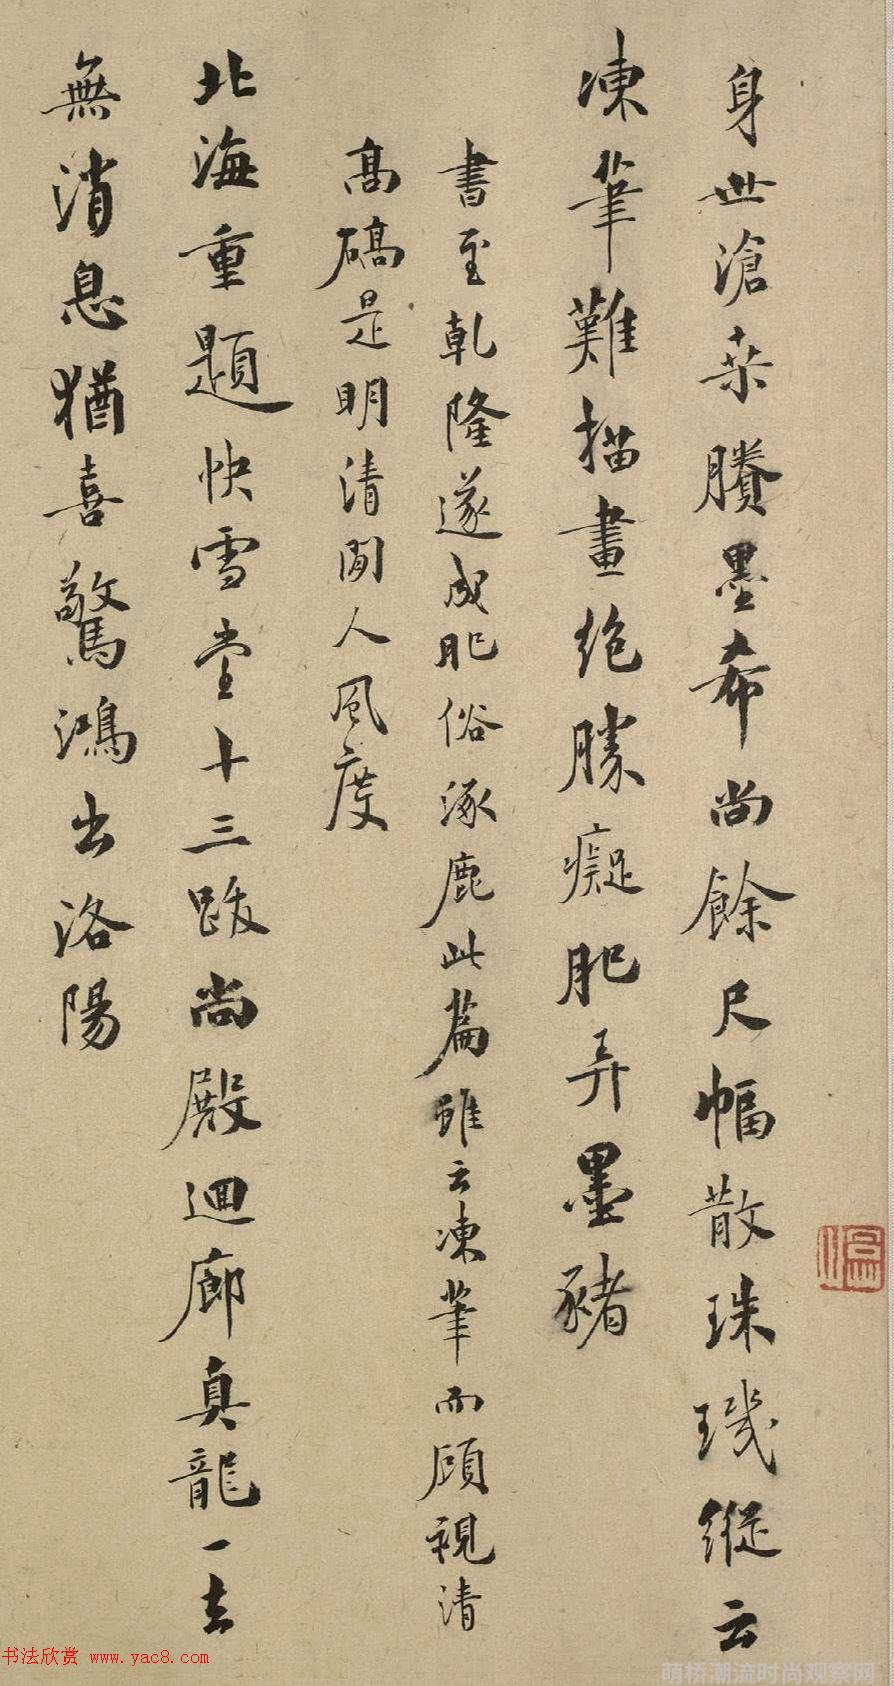 身世滄桑賸墨希尚餘尺幅散珠璣縱云
凍筆難描畫絶勝癡肥弄墨豬
書至乾隆遂成肥俗涿鹿此篇雖云凍筆而顧視清
高碻是明清間人風度
北海重題快雪堂十三跋尚殿迴廊真龍一去
無消息猶喜驚鴻出洛陽
书法欣赏 www.yac8.com
萌桥潮流时尚观察网